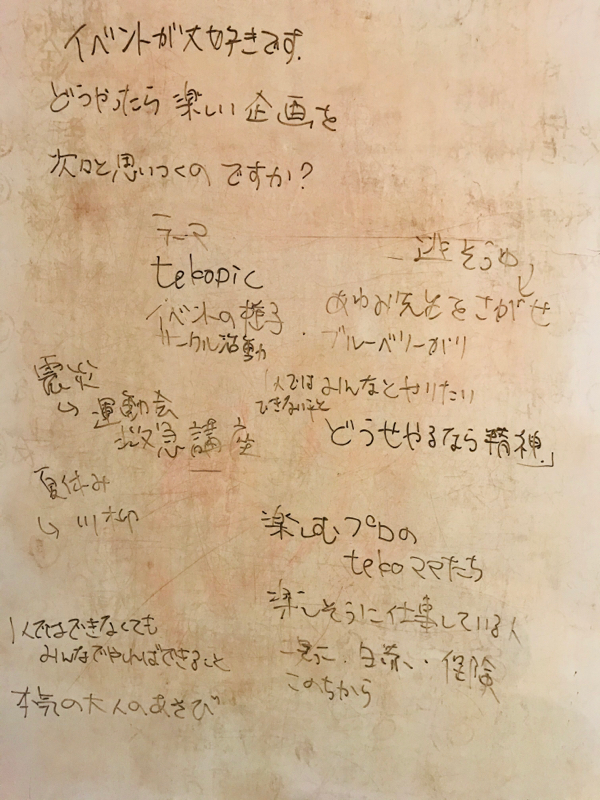 イベントが大好きです.
どうやったら楽しい企画を
次々と思いつくのですか?
テーマ
tekopic
イベントの様子
サークル活動
逃走
あゆみ先生をさがせ
ブルーベリーがり
1人では
できないこと
みんなとやりたい
どうせやるなら精神」
震災
↳ 運動会
救急講座
夏休み
↳ 川柳
楽しむプロの
tekoママたち
楽しそうに仕事している人
保険
このちから
1人ではできなくても
みんなでやればできること
本気の大人のあそび